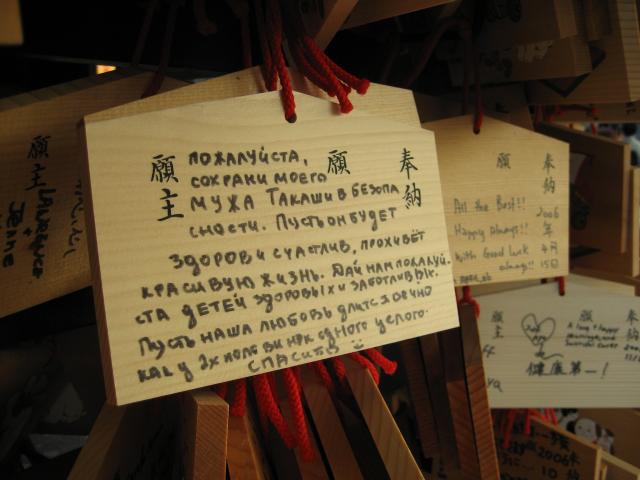 願主
願
奉納
ПОЖАЛУЙСТА,
СОХРАНИ МОЕГО
МУЖА ТАКАШИ В БЕЗОПА
СНОСТИ. ПУСТЬ ОН БУДЕТ
ЗДОРОВ И СЧАСТЛИВ, ПРОЖИВЁТ
КРАСИВУЮ ЖИЗНЬ. ДАЙ НАМ ПОЖАЛУЙ.
СТА ДЕТЕЙ ЗДОРОВЫХ И ЗАБОТЛИВЫХ.
ПУСТЬ НАША ЛЮБОВЬ ДЛИТСЯ ВЕЧНО
КАК У 2Х ПОЛОВИНОК ОДНОГО ЦЕЛОГО.
СПАСИБО
願
奉納
All the Best!!
Happy always!!
with Good luck
always!!
2006
年
4月
15日
願主
願
奉
健康第一!
願主